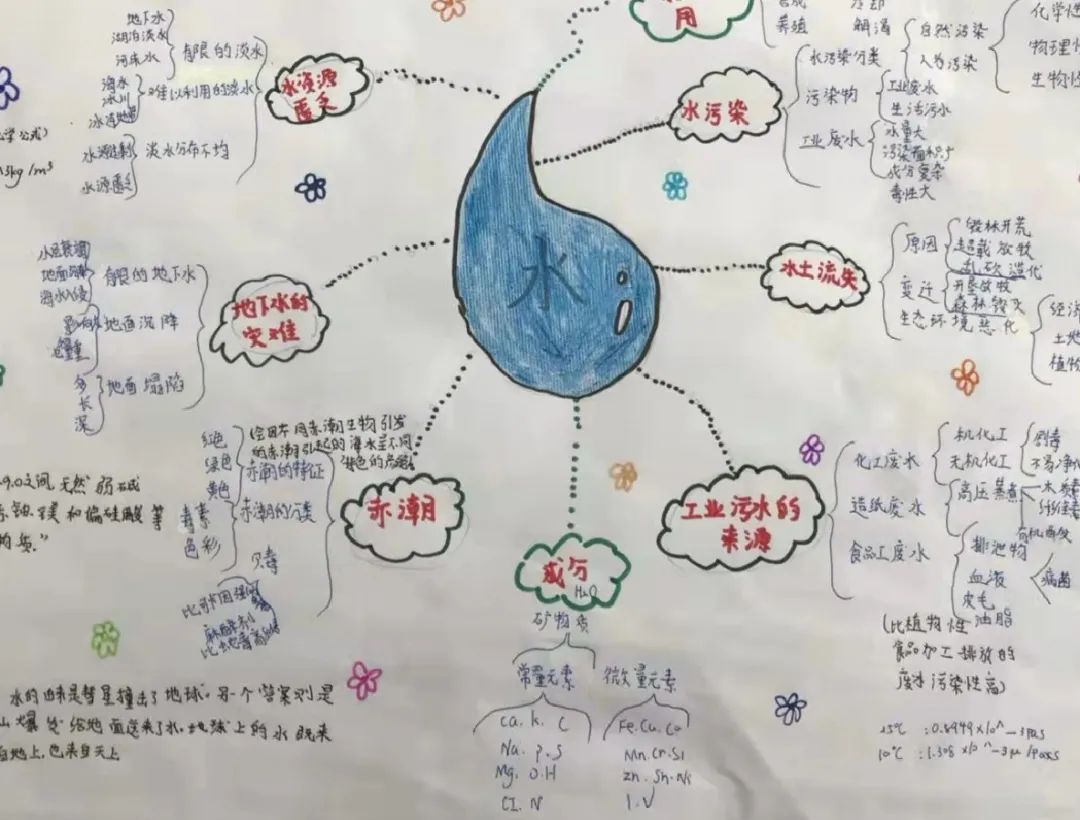 水
用
养殖
解渴
水资源
匮乏
有限的淡水
地下水
湖泊淡水
河床水
难以利用的淡水
海水
冰川
淡水分布不均
水源匮乏
学公式)
kg/m³
水污染
水污染分类
自然污染
人为污染
化学性
物理性
生物性
污染物
工业废水
生活污水
工业废水
水量大
成分复杂
毒性大
水土流失
原因
毁林开荒
超载放牧
乱砍
变迁
开垦放牧
森林毁灭
生态环境恶化
经济
土地
植物
地下水的
灾难
有限的地下水
海水入侵
地面沉降
影响
地面塌陷
多
长
深
赤潮
会因不同赤潮生物引发
的赤潮引起的海水呈不同
赤潮的特征
红色
绿色
黄色
赤潮的分类
毒素
色彩
贝毒
比
麻醉剂
9.0之间,天然弱碱
和偏硅酸等
成分
H₂O
矿物质
常量元素
微量元素
Ca. K. C
Na. P. S
Mg. O.H
Cl. N
Fe. Cu. Co
Mn. Cr. Si
Zn. Sn. Ni
I. V
工业污水的
来源
化工废水
有机化工
无机化工
剧毒
不易净化
造纸废水
高压蒸煮
木质素
纤维素
食品工废水
排泄物
血液
皮毛
油脂
病菌
(比植物性
食品加工排放的
废水污染性高)
水的由来是彗星撞击了地球。另一个答案则是
山爆发给地面送来了水。地球上的水既来
自地上,也来自天上
25℃
10℃